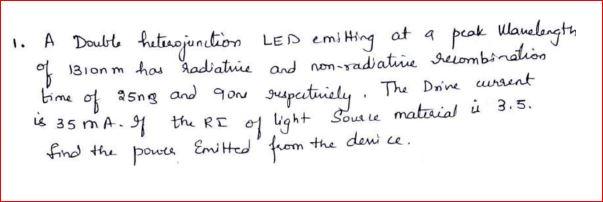 1. A Double heterojunction LED emitting at a peak Wavelength
of 1310nm has radiative and non-radiative recombination
time of 25ns and 90ns respectively. The Drive current
is 35 mA. If the RI of light Source material is 3.5.
find the power Emitted from the device.